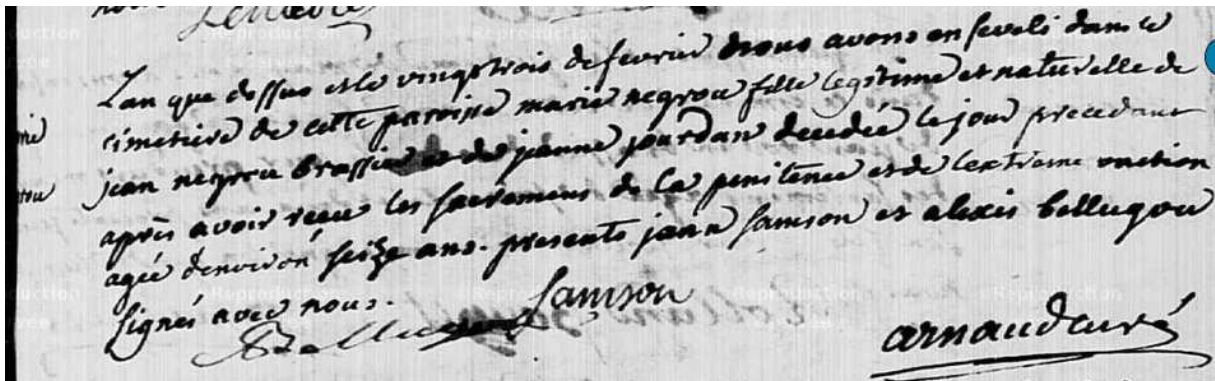 Lan que dessus et le vingt trois de fevrier nous avons enseveli dans le
cimetiere de cette paroisse marie negrou fille legitime et naturelle de
jean negrou brassier et de jeanne jourdan decedée le jour precedant
après avoir reçu les sacremens de la penitence et de lextreme onction
agée denviron seize ans. presents jean samson et alexis bellugou
signés avec nous.
samson
arnaud curé